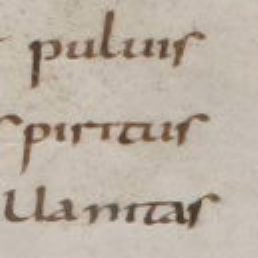 puluis
spiritus
Uanitas